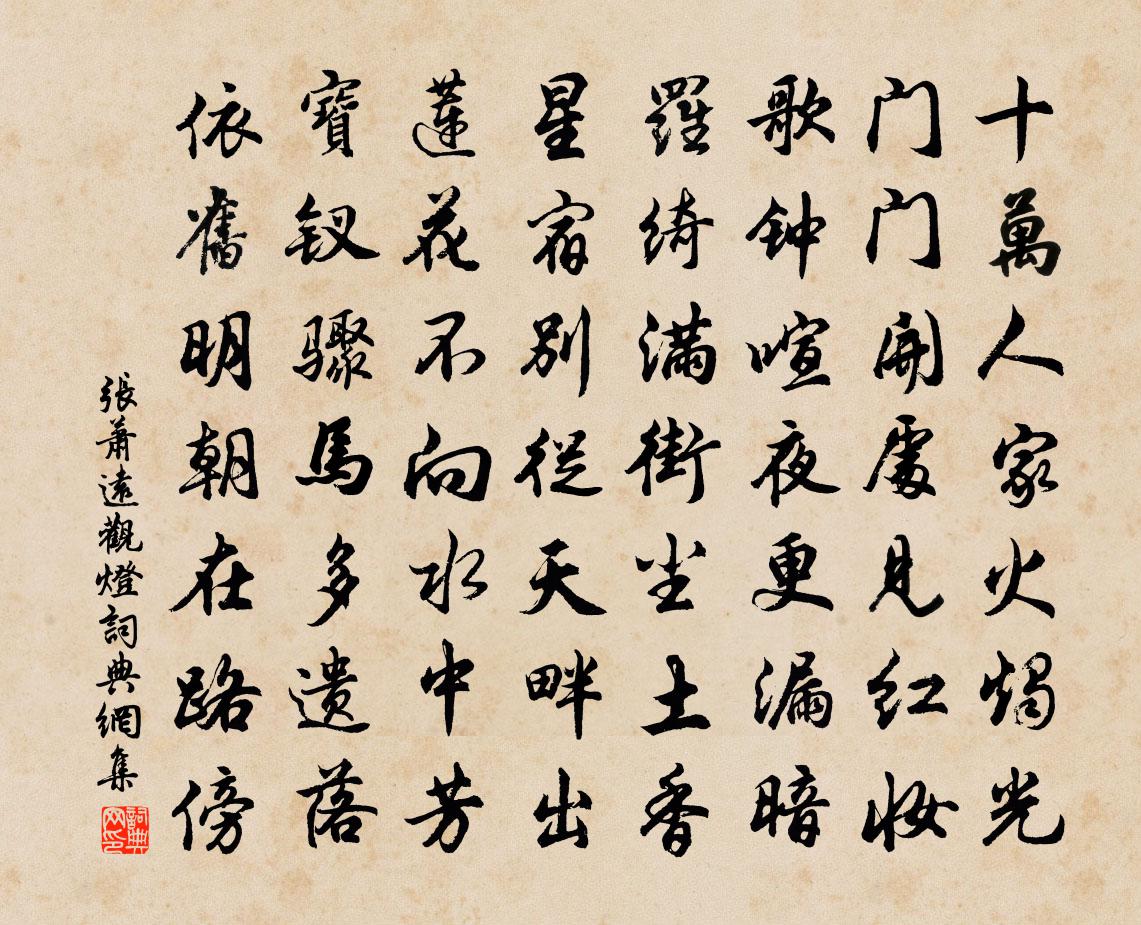 十萬人家火燭光
门门開處見红妝
歌钟喧夜更漏暗
羅绮满街尘土香
星宿别從天畔出
莲花不向水中芳
寶钗骤馬多遗落
依舊明朝在路傍
張蕭遠觀燈詞典網集
詞典網印